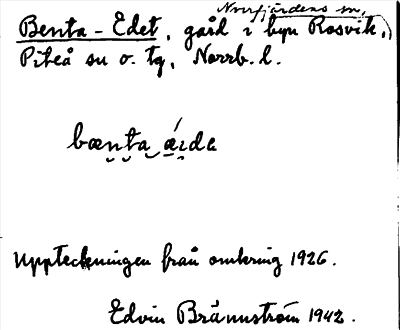 Norrfjärdens sn,
Benta-Edet, gård i byn Rosvik,
Piteå sn o. tg, Norrb. l.
bænta æide
Uppteckningen från omkring 1926.
Edvin Brännström 1942.